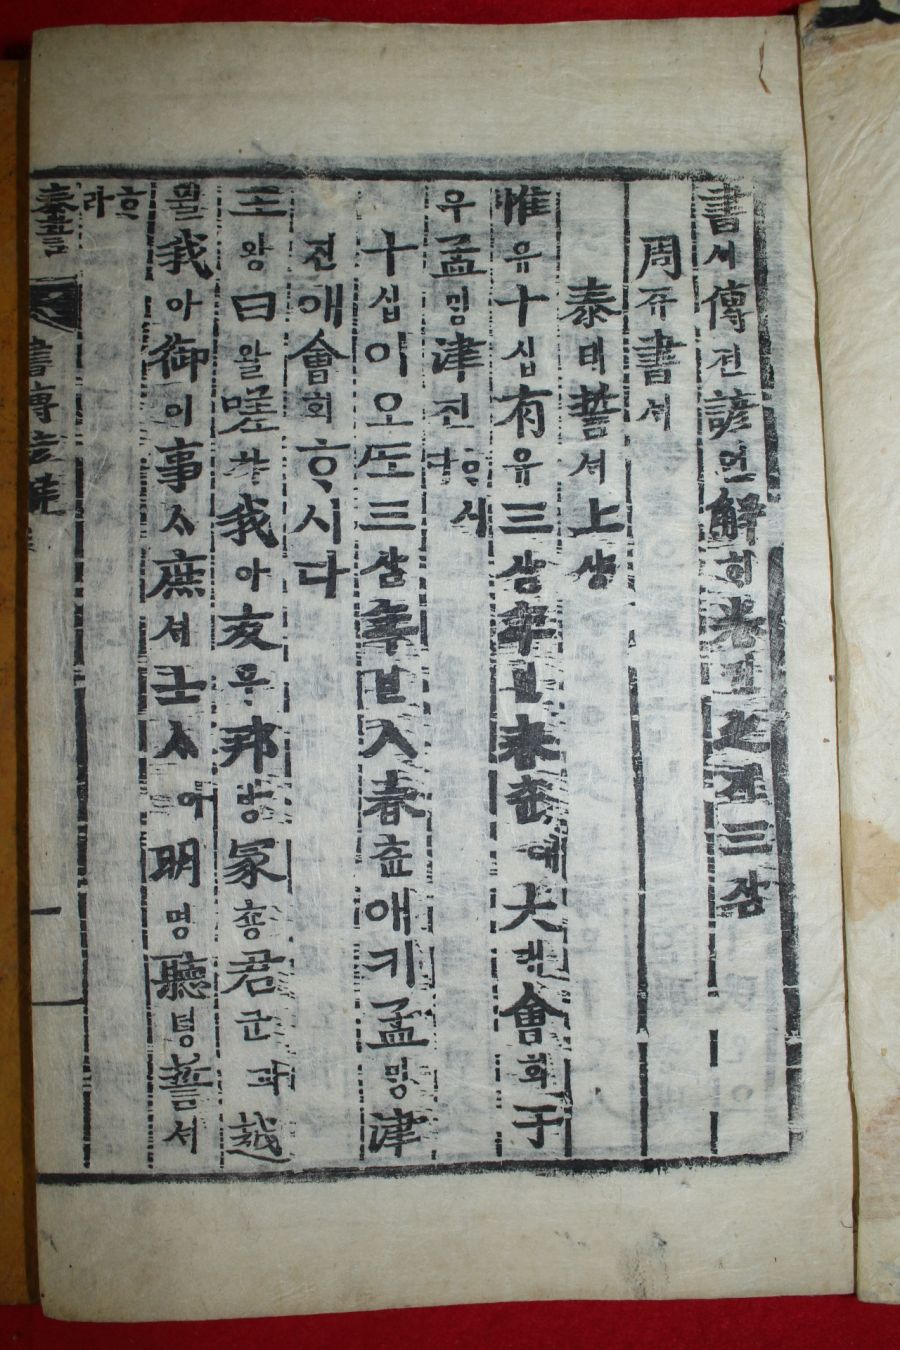 書셔傳젼諺언解ᄒᆡ卷권之지三삼
周쥬書셔
泰태誓셔上샹
惟유十십有유三삼年년春츈에大대會회于
우孟ᄆᆡᆼ津진ᄒᆞ시다
十십이오ᄯᅩ三삼年년ㅅ春츈애키孟ᄆᆡᆼ津
진애會회ᄒᆞ시다
王왕曰왈嗟차我아友우邦방冢춍君군과越
월我아御어事ᄉᆞ庶셔士ᄉᆞ아明명聽텽誓셔
ᄒᆞ라
泰誓 書傳諺解